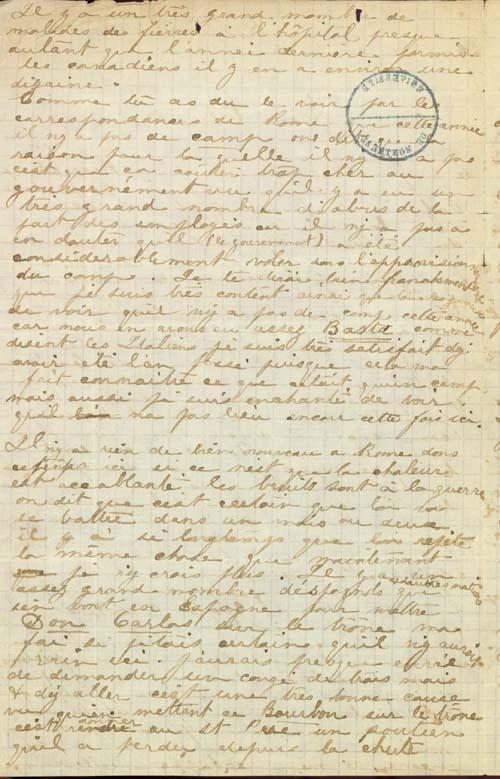 Il y a un très grand nombre de
malades des fièvres à l'hôpital presque
autant que l'année dernière parmis
les canadiens il y en a environ une
dizaine.
Comme tu as du le voir par les
correspondances de Rome cette année
il n'y a pas de camp on dit que la
raison pour laquelle il n'y a pas
c'est que ça coutait trop cher au
gouvernement vu qu'il y a eu un
très grand nombre d'abus de la
part des employés car il n'y a pas à
en douter qu'il (le gouvernement) a été
considérablement voler dans l'approvision
du camp. Je te dirai bien franchement
que je suis très content ainsi que
de voir qu'il n'y a pas de camp cette année
car nous en avons eu assez Basta comme
disent les Italiens je suis très satisfait d'y
avoir été l'an passé puisque cela m'a
fait connaître ce que c'était qu'un camp
mais aussi je suis enchanté de voir
qu'il n'a pas lieu encore cette fois ici.
Il n'y a rien de bien nouveau a Rome dans
ce temps ici si ce n'est que la chaleur
est accablante. les bruits sont à la guerre
on dit que c'est certain que l'on va
se battre dans un mois ou deux
il y a si longtemps que l'on répète
la même chose que maintenant
je n'y crois plus. Il y a un
assez grand nombre d'espagnols qui
s'en vont en Espagne pour mettre
Don Carlos sur le trône ma
foi si j'étais certain qu'il n'y aurait
rien ici j'aurais presque envie
de demander un congé de trois mois
& d'y aller c'est une très bonne cause
vu qu'en mettant ce Bourbon sur le trône
c'est rendre au St Père un soutien
qu'il a perdu depuis la chute